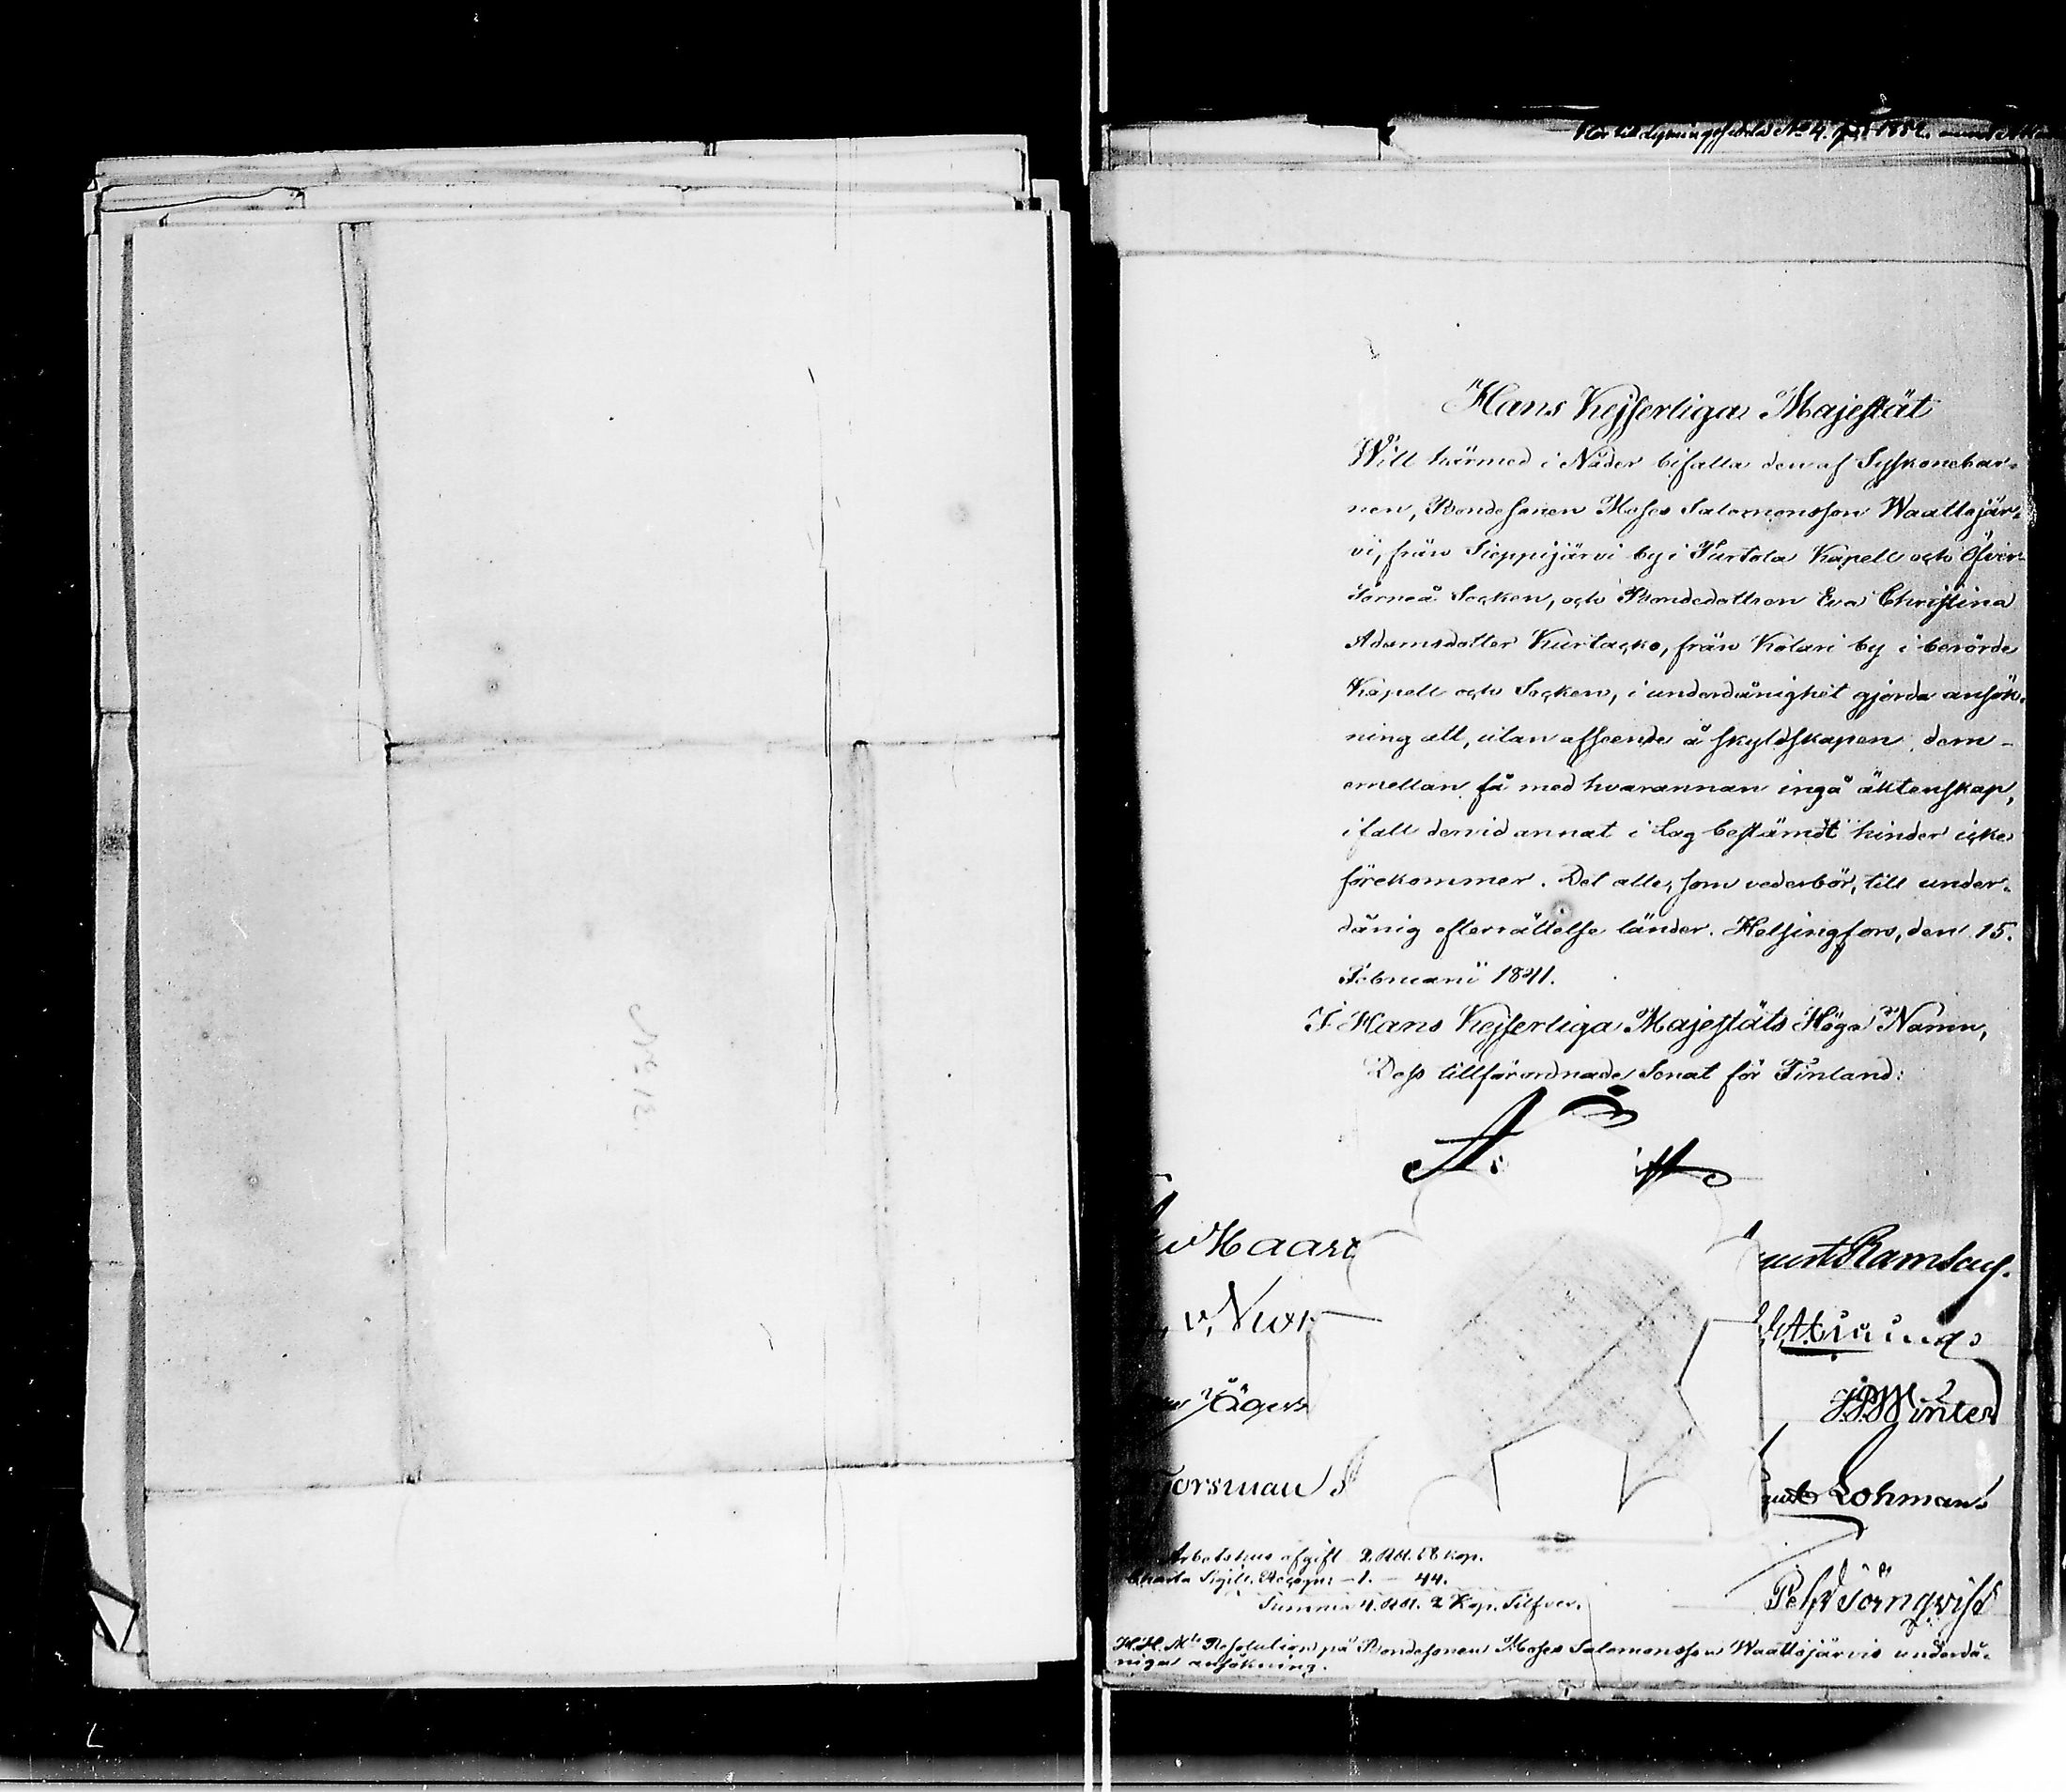 Hans Kejserliga Majestät
Will härmed i Nåder bifalla den af Syskonebar-
nen, Bondesonen Moses Salomonsson Waattojär-
vi, från Sieppijärvi by i Turtola Kapell och Öfver-
Torneå Socken, och Bondedottren Eva Christina
Adamsdotter Kurtacko, från Kolari by i berörde
Kapell och Socken, i underdånighet gjorda ansök-
ning att, utan afseende å skyldskapen dem-
emellan få med hvarannan ingå äktenskap,
ifall dervid annat i Lag bestämdt hinder icke
förekommer. Det alle, som vederbör, till under-
dånig efterrättelse länder. Helsingfors, den 15.
Februarii 1841.
I Hans Kejserliga Majestäts Höga Namn,
Dess tillförordnade Senat för Finland:
Haart
Ramsay.
J. P. Winter
Forsman
Lohman
Arbetshus afgift 2 Rbl. 58 kop.
Charta Sigill. Recogn: – 1. – 44.
Summa 4. Rbl. 2 Kop. Silfver.
Pehr Törnqvist
H. K. Mts Resolution på Bondesonen Moses Salomonsson Waattojärvis underdå-
niga ansökning.